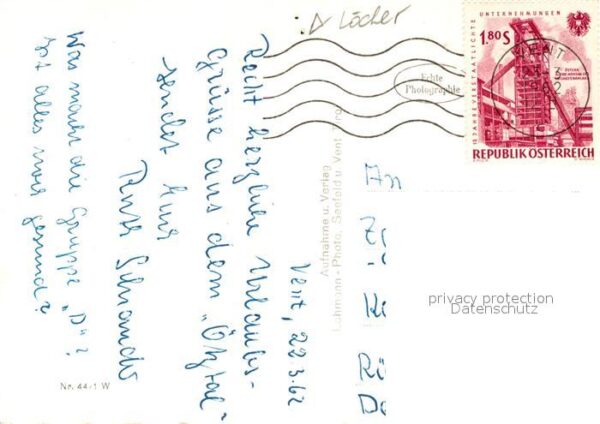 △ Löcher
Vent, 22.3.62
Recht herzliche Urlaubs-
grüsse aus dem "Ötztal"
sendet Euch
Ruth
Was macht die Gruppe "D"?
Ist alles noch gesund?
Nr. 44/1 W
Aufnahme u. Verlag
Lohmann - Photo, Seefeld u Vent, Tirol
Echte
Photographie
15 JAHRE VERSTAATLICHTE UNTERNEHMUNGEN
1.80 S
REPUBLIK ÖSTERREICH
VENT
An
Rö
privacy protection
Datenschutz